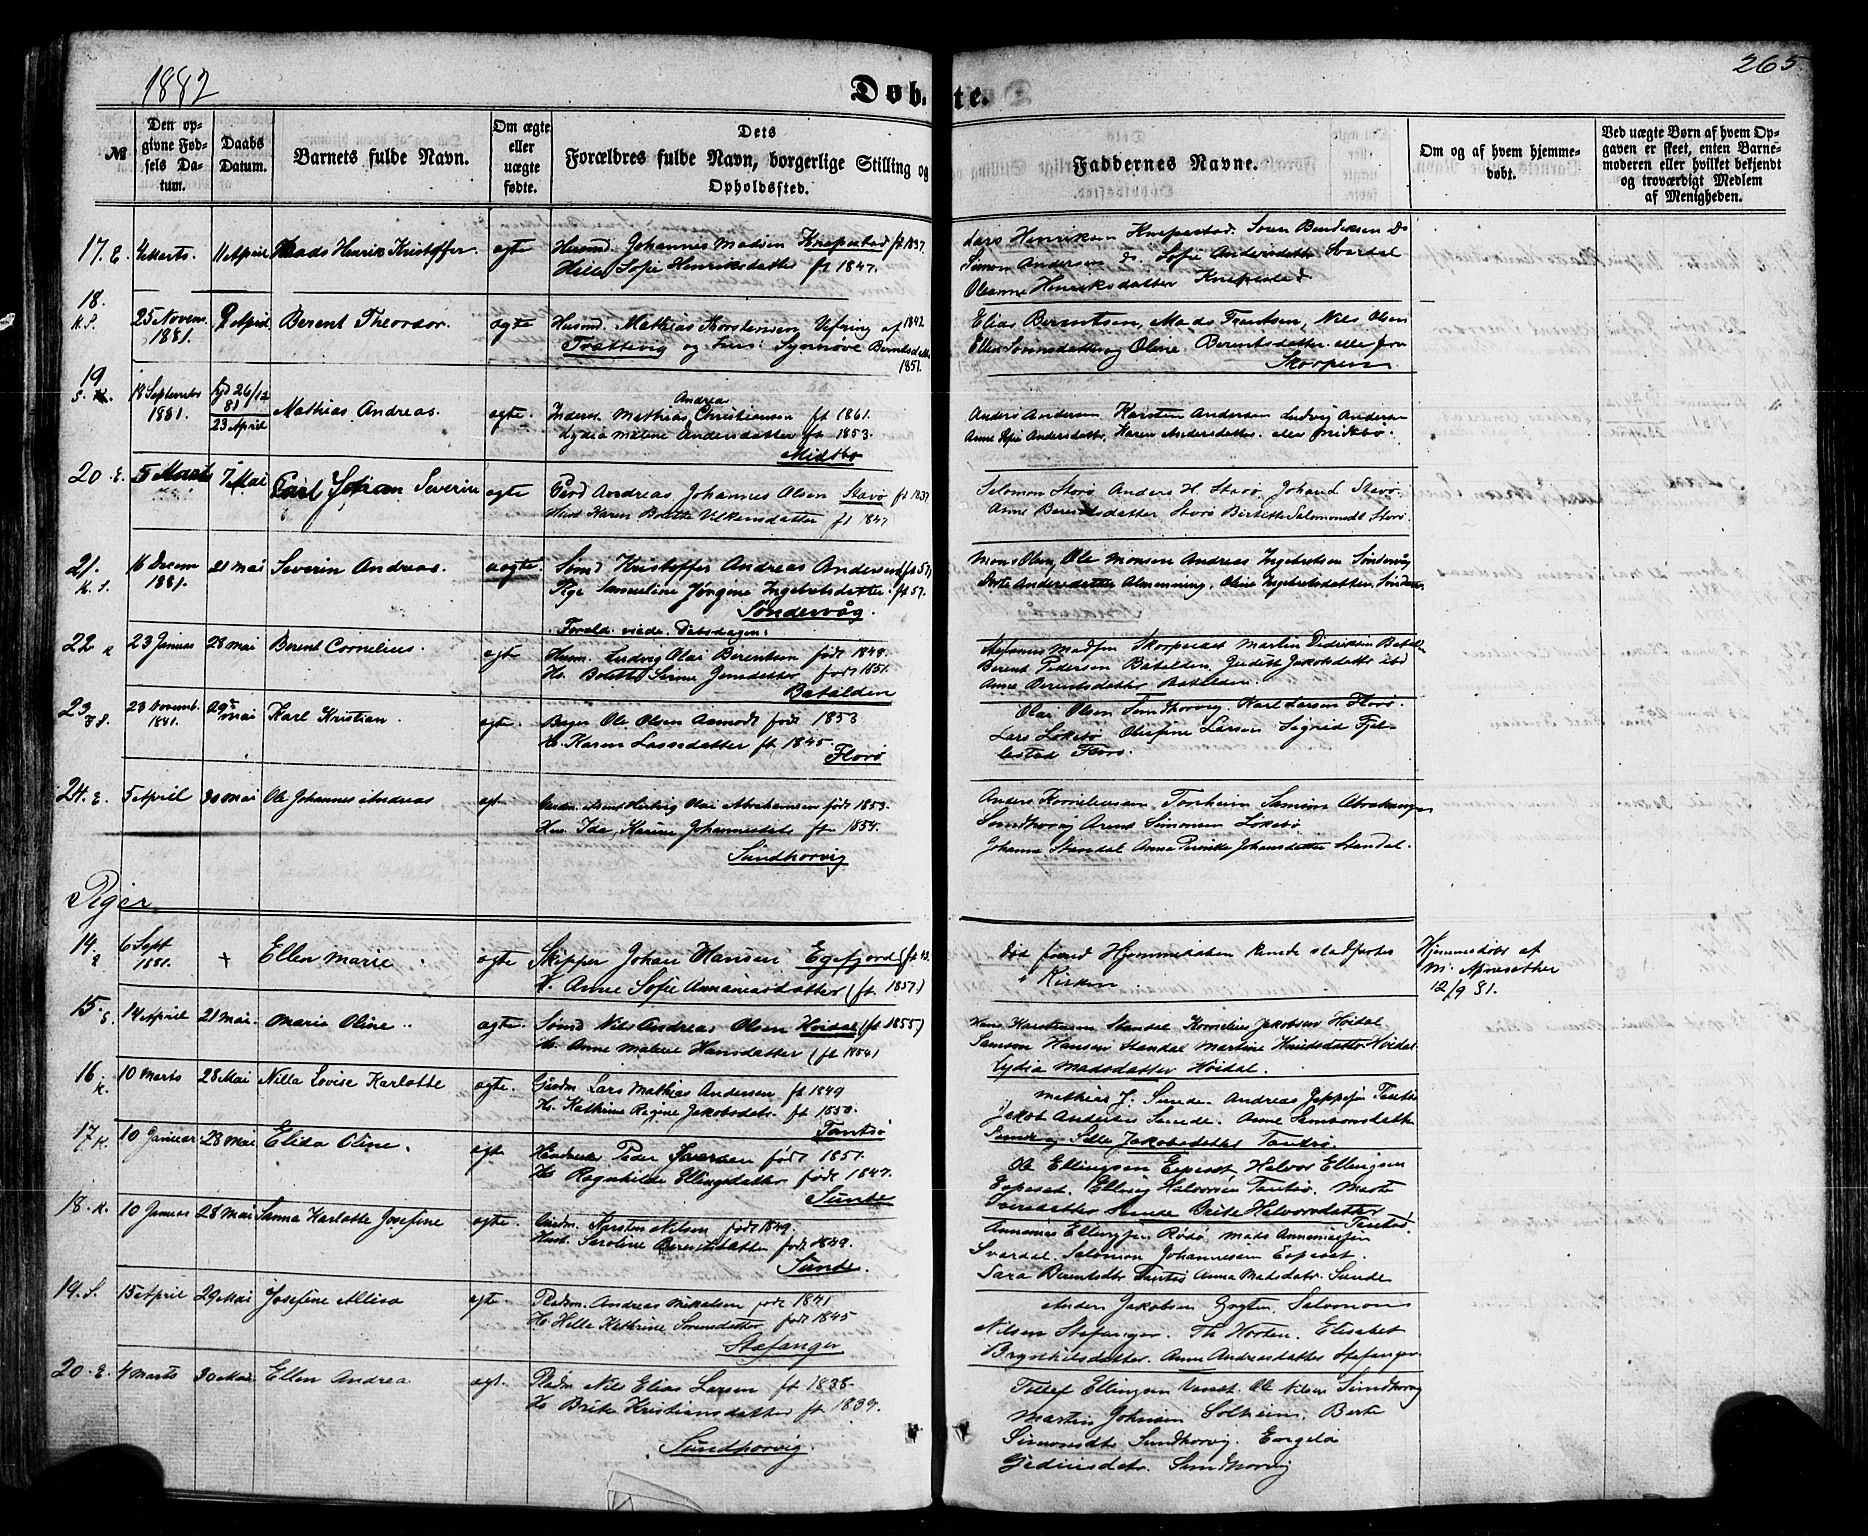 1882
265
Døb-te.
№
Den opgivne Fødsels Datum.
Daabs Datum.
Barnets fulde Navn.
Om ægte eller uægte fødte.
Dets Forældres fulde Navn, borgerlige Stilling og Opholdssted.
Faddernes Navne.
Om og af hvem hjemmedøbt.
Ved uægte Børn af hvem Opgaven er skeet, enten Barnemoderen eller hvilket bekjendt og troværdigt Medlem af Menigheden.
17. E. 4 Marts 11 April Mads Henrik Kristoffer. ægte Husmd. Johannes Madsen Knapestad ft 1837.
Helle Sofie Henriksdatter ft 1847.
Lars Henriksen Knapestad. Søren Bendiksen Do
Simon Andersen Do. Sofie Andersdatter Svardal
Oleanne Henriksdatter Knapestad
18. K.S. 25 Novem. 1881. 9 April Berent Theordor. ægte Husmd. Mathias Torstensen af 1842
og Hus: Synnøve Berntsdatter 1851.
Elias Berentsen, Mads Frantsen, Nils Olsen
Ellen Oline Berentsdatter alle fra
Skorpen
19 S. 18 September 1881. 26/12 81 23 April Mathias Andreas. ægte. Inders. Mathias Andrea Christiansen ft 1861.
Lydia Maline Andersdatter ft 1853.
Midtbø
Anders Andersen Karsten Andersen Ludvig Andersen
Anne Sofie Andersdatter, Karen Andersdatter. alle
20. E. 5 Marts 7 Mai Carl Johan Severin ægte Gård Andreas Johannes Olsen Stavø ft 1837
Hust Karen Bolette Vilkensdatter ft 1847
Salomon Storø Anders H. Stavø. Johan Stavø.
Anne Berentsdatter Storø Birtitte Salomonsdt Storø.
21. K.S. 16 Decem 1881. 21 Mai Severin Andreas. uægte. Sømd Kristoffer Andreas Andersen ft 57.
Pige Samueline Jørgine Ingebretsdatter. ft 57.
Søndervåg.
Foræld. viede Dåbsdagen.
Mons Olsen, Ole Monsen Andreas Ingebretsen Søndervåg
Andersdatter Almenning. Oline Ingebretsdatter,
22 K 23 Januar 28 Mai Berent Cornelius. ægte Husm. Ludvig Olai Berentsen født 1848.
Hs. Bolette Serine Jensdatter født 1851.
Batalden
Stefanus Madsen Skorpeidet Martin Didriksen Batalden
Berent Pedersen Batalden, Jakobsdatter ibd
Anne Berentsdatter Batalden.
23 F.S. 23 Novemb. 1881. 29 Mai Karl Kristian. ægte. Borger Ole Olsen Aamodt født 1853
Hs. Karen Lassedatter ft 1845.
Florø
Olai Olsen Sundhorvig. Karl Larsen Florø.
Lars Løkebø Olufine Larsen Sigrid Fjellestad
Florø.
24. E. 5 April 30 Mai Ole Johannes Andreas ægt Hertvig Olai Abrahamsen født 1853.
Hus. Ida Karine Johannesdatr ft 1854.
Sundhorvig
Anders Korneliussen Simon Abrahamsen
Sundhorvig Arent Simonsen Løkebø
Johanna Standal Anna Johansdatter Standal.
Piger
14. 6 Sept 1881. + Ellen Marie. ægte Skipper Johan Hansen Egefjord (ft
H. Anne Sofie Ananiasdatter (ft. 1857.)
Død førend Hjemmedåben kunde stadfæstes
i Kirken.
Hjemmedøbt af
M.
12/9 81.
15. S. 14 April 21 Mai. Marie Oline. ægte. Sømd Nils Andreas Olsen Høidal (ft 1855)
Hs. Anne Malene Hansdatter (ft 1854)
Hans Karstensen Standal Kornelius Jakobsen Høidal
Samson Hansen Standal Martine Knudsdatter Høidal.
Lydia Madsdatter Høidal.
16. K. 10 Marts 28 Mai Nilla Lovise Karlotte ægte. Gårdm Lars Mathias Andersen ft 1849
Hs. Kathrine Regine Jakobsdatr. ft 1850.
Tantsø
Mathias J. Sunde. Andreas Jeppesen Tantsø
Jakob Andersen Sunde. Anne Samsonsdatter
Sunde og Jakobsdatter Tantsø.
17 K. 10 Januar. 28 Mai Elida Oline. ægte Peder Iversen født 1851.
Hs Ragnhilde Ellingsdatter født 1847.
Sunde
Ole Ellingsen Espeset. Halvor Ellingsen
Espeset. Elling Halvorsen Tantsø. Marte
Iversdatter Sunde Brite Halvorsdatter
Tantsø
18. K. 10 Januar 28 Mai Sanna Karlotte Josefine ægte. Gårdm. Karsten Nilsen født 1849.
Hust. Seroline Berentsdatter født 1849.
Sunde.
Annanias Ellingsen Rødø. Mads Annaniassen
Svardal. Salomon Johannesen Espeset.
Sara Berentsdtr Tantsø Anna Madsdatr. Sunde
19. S. 15 April 29 Mai Josefine Alida ægte. Pladsm. Andreas Mikalsen født 1841
Hs. Helle Kathrine Sørensdatter født 1845
Stafanger
Anders Jakobsen Salomon
Nilsen Stafanger. Elisabet
Brynhilsdatter. Anne Andreasdatter Stafanger.
20. E. 4 Marts 30 Mai. Ellen Andrea ægt. Pladm Nils Elias Larsen ft 1838.
Hs Brite Kristiansdatter ft 1839.
Sundhorvig.
Tollef Ellingsen Ole Nilsen Sundhorvig
Martin Johnsen Solheim. Berte
Simonsdtr Sundhorvig.
Sundhorvig